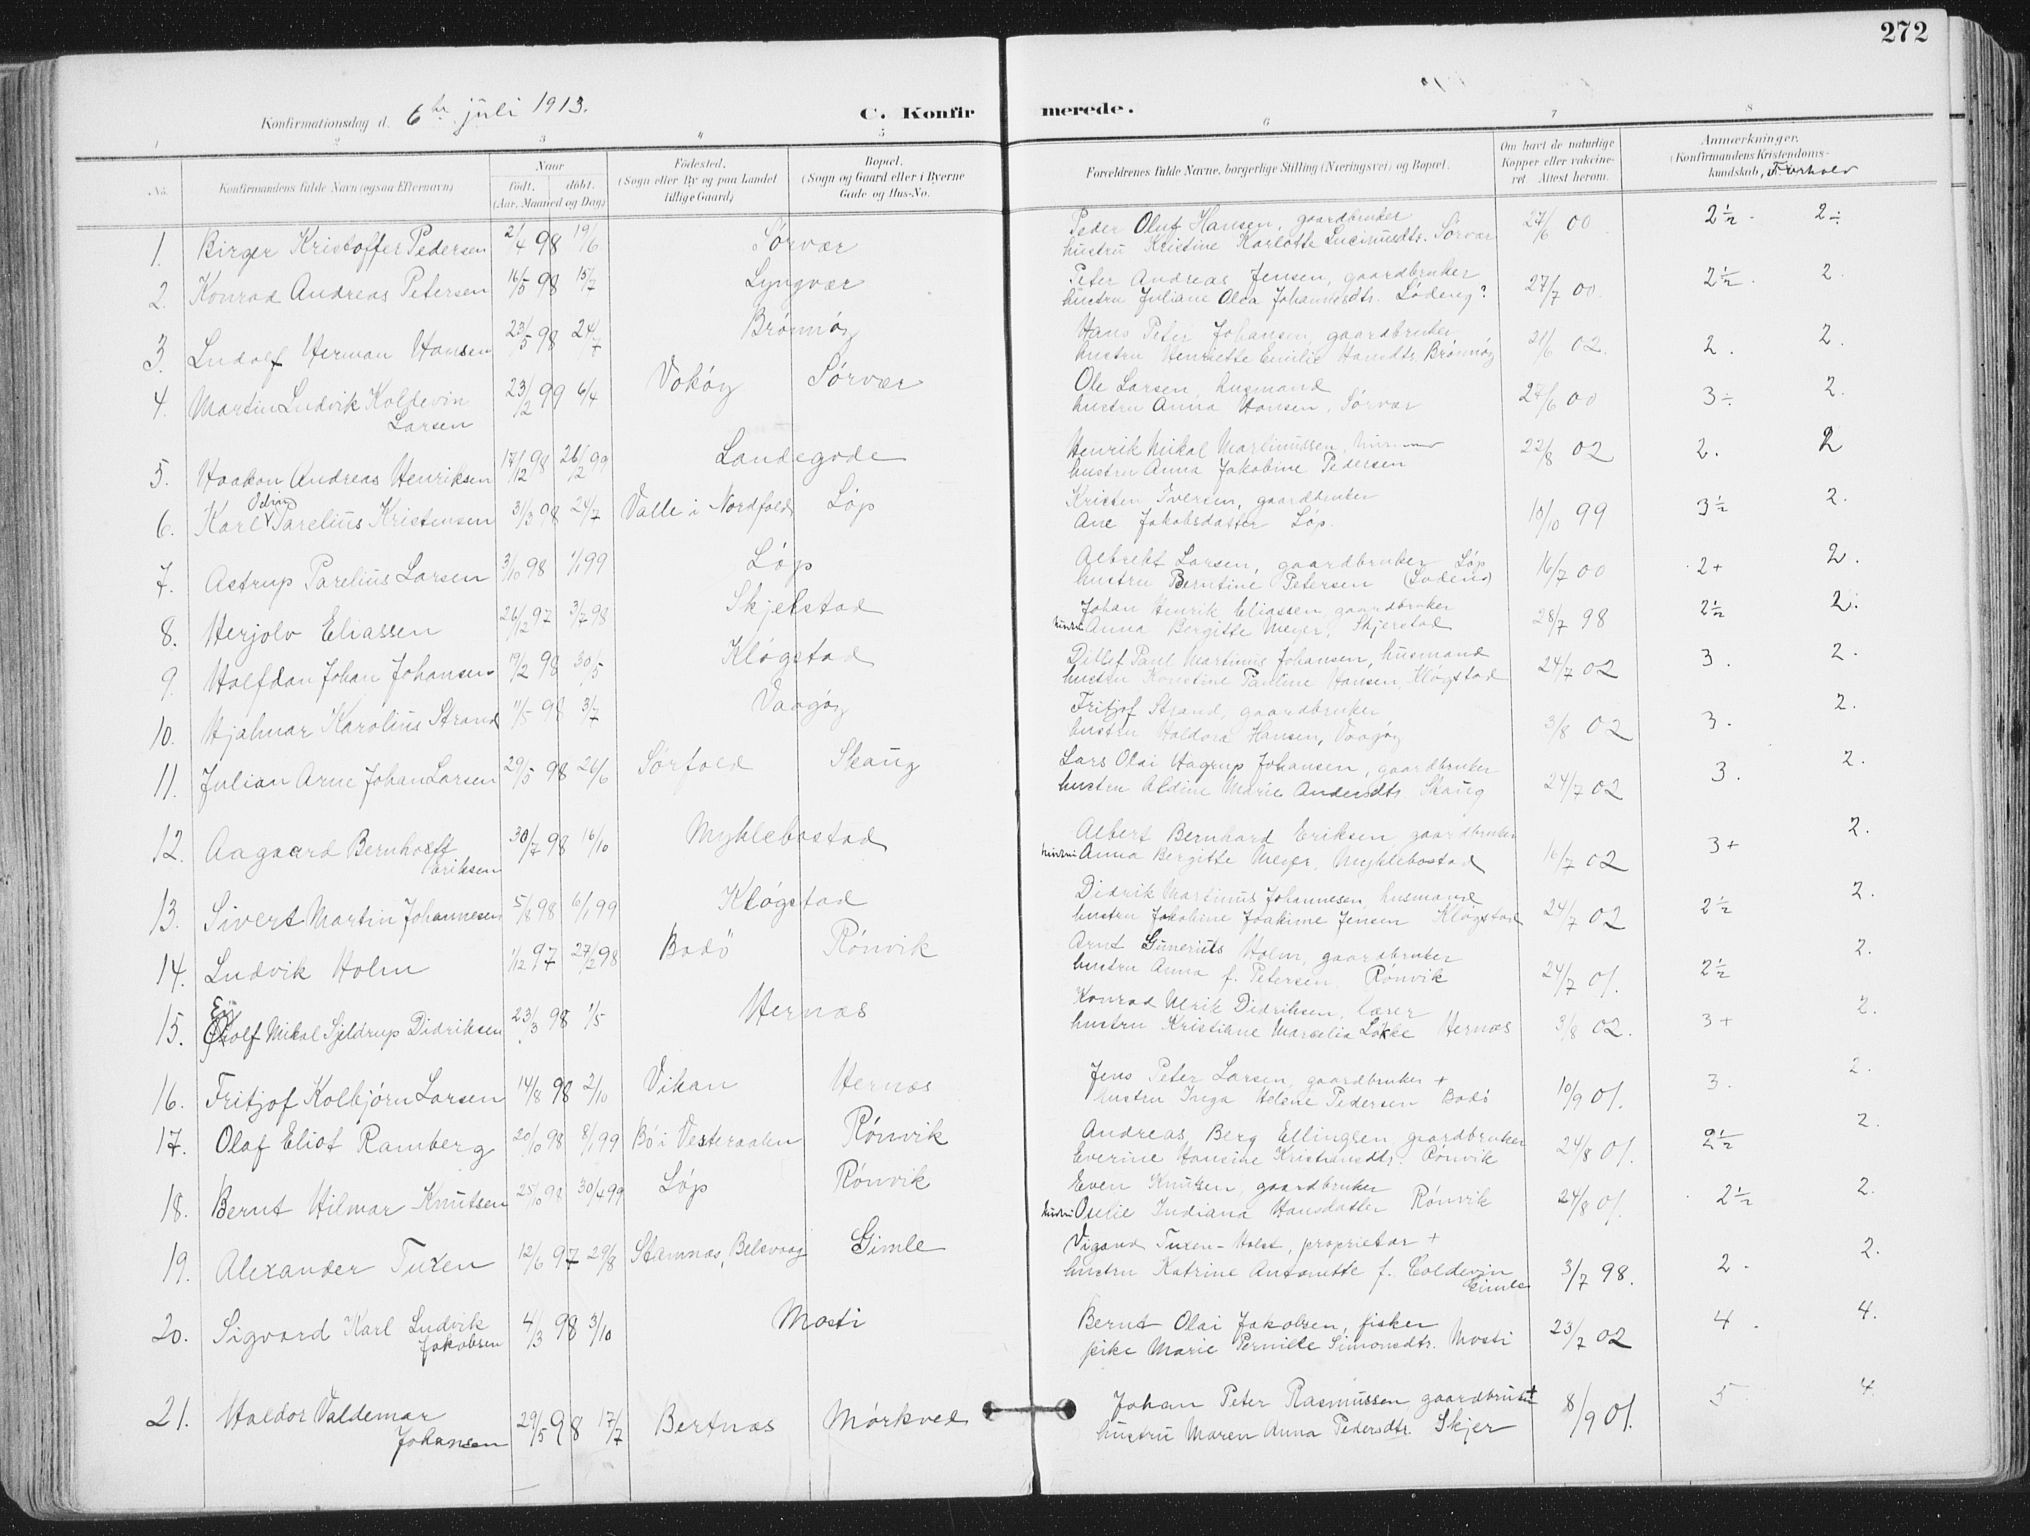 272
Konfirmationsdag d. 6te juli 1913.
C. Konfirmerede.
1 2 3 4 5 6 7 8
No. Konfirmandens fulde Navn (ogsaa Efternavn) Naar født. døbt. (Aar, Maaned og Dag) Fødested. (Sogn eller By og paa Landet tillige Gaard) Bopæl. (Sogn og Gaard eller i Byerne Gade og Hus-No. Forældrenes fulde Navne, borgerlige Stilling (Næringsvei) og Bopæl. Om havt de naturlige Kopper eller vakcineret Attest herom. Anmærkninger. (Konfirmandens Kristendomskundskab, Forhold
1. Birger Kristoffer Pedersen 2/4 98 19/6 Sørvær Peder Oluf Hansen, gaardbruker 27/6 00 2½ 2÷
hustru Kristine Karlotte Lucinusdtr. Sørvær
2. Konrad Andreas Petersen 16/5 98 15/7 Lyngvær Peter Andreas Jensen, gaardbruker 27/7 00 2½ 2.
hustru Juliane Olea Johannesdtr. Løding?
3. Ludolf Herman Hansen 23/5 98 24/7 Brønnøy Hans Peter Johansen, gaardbruker 21/6 02. 2. 2.
hustru Henriette Emilie Hansdtr, Brønnøy
4. Martin Ludvik Koldevin 23/2 99 6/4 Vokøy Sørvær Ole Larsen, husmand 27/6 00 3÷ 2.
Larsen hustru Anna Hansen, Sørvær
5. Haakon Andreas Henriksen 17/12 98 26/2 99 Landegode Henrik Mikal Martinussen, 22/8 02 2. 2
hustru Anna Jakobine Pedersen
6. Karl Odin Parelius Kristensen 31/3 98 24/7 Valle i Nordfold Løp Kristen Iversen, gaardbruker 10/10 99 3½ 2.
Ane Jakobsdatter Løp.
7. Astrup Parelius Larsen 3/10 98 1/1 99 Løp Albrekt Larsen, gaardbruker Løp 16/7 00 2+ 2.
hustru Berntine Petersen
8. Herjolv Eliassen 26/12 97 3/7 98 Skjelstad Johan Henrik Eliassen, gaardbruker 28/7 98 2½ 2.
hustru Anna Bergitte Meyer, Skjerstad
9. Halfdan Johan Johansen 19/2 98 30/5 Kløgstad Ditlef Paul Martinus Johansen, husmand 24/7 02 3. 2.
hustru Konstine Pauline Hansen, Kløgstad
10. Hjalmar Karolius Strand 11/5 98 3/7 Vaagøy Fritjof Strand, gaardbruker 3/8 02 3. 2.
hustru Haldora Hansen, Vaagøy
11. Julian Arne Johan Larsen 29/5 98 26/6 Sørfold Skaug Lars Olai Hagrup Johansen, gaardbruker 24/7 02 3. 2.
hustru Aldine Marie Andersdtr. Skaug
12. Aagaard Bernhoft 30/7 98 16/10 Myklebostad Albert Bernhard Eriksen gaardbruker 16/7 02 3+ 2.
Eriksen hustru Anna Bergitte Meyer, Myklebostad
13. Sivert Martin Johannesen 5/8 98 6/1 99 Kløgstad Didrik Martinus Johannesen, husmand 24/7 02 2½ 2.
hustru Jakobine Joakime Jensen Kløgstad
14. Ludvik Holm 1/12 97 27/2 98 Bodö Rønvik Arnt Gunerius Holm, gaardbruker 24/7 01. 2½ 2.
hustru Anna f. Petersen Rønvik
15. Eilolf Mikal Sjeldrup Didriksen 23/3 98 1/5 Hernæs Konrad Ulrik Didriksen, lærer 3/8 02. 3+ 2.
hustru Kristiane Marselia Løkke Hernæs
16. Fritjof Kolbjørn Larsen 14/8 98 2/10 Vikan Hernæs Jens Peter Larsen, gaardbruker + 10/9 01. 3. 2.
hustru Inga Helene Pedersen Bodö
17. Olaf Eliot Ramberg 20/10 98 8/1 99 Bø i Vesteraalen Rønvik Andreas Berg Ellingsen, gaardbruker 24/8 01. 2½ 2.
Everine Hansine Kristiansdtr. Rønvik
18. Bernt Hilmar Knutsen 25/10 98 30/4 99 Løp Rønvik Even Knutsen, gaardbruker 24/8 01. 2½ 2.
hustru Ovelie Indiana Hansdatter Rønvik
19. Alexander Tuxen 12/6 97 29/8 Stamnæs, Belsvaag Gimle Vigand Tuxen-Holst, proprietær + 3/7 98. 2. 2.
hustru Katrine Antonette f. Coldevin Gimle
20. Sigvard Karl Ludvik 4/3 98 3/10 Mosti Bernt Olai Jakobsen, fisker 23/7 02 4. 4.
Jakobsen pike Marie Pernille Simonsdtr. Mosti
21. Haldor Valdemar 29/5 98 17/7 Bertnæs Mørkved Johan Peter Rasmussen, gaardbruker + 8/9 01. 5 4.
Johansen hustru Maren Anna Pedersdtr. Skjer